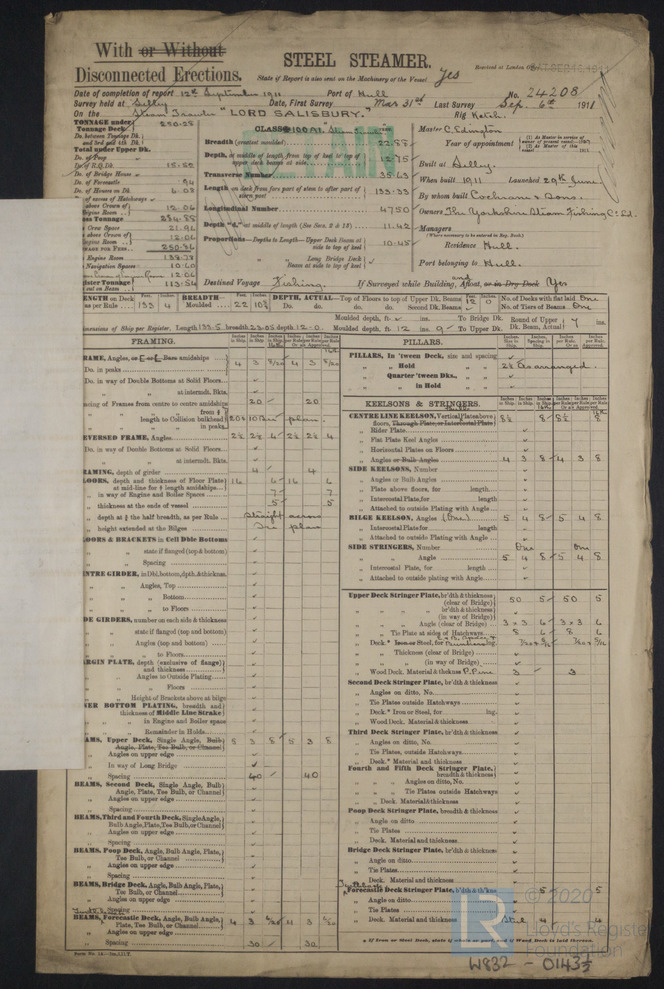 With or Without
Disconnected Erections.
STEEL STEAMER.
State if Report is also sent on the Machinery of the Vessel Yes
Received at London Office SAT. SEP. 16 1911
No. 24208
Date of completion of report 12th September 1911 Port of Hull
Survey held at Selby Date, First Survey Mar 31st Last Survey Sep. 6th 1911
On the Steam Trawler "LORD SALISBURY." Rig Ketch.
TONNAGE under Tonnage Deck 250.28
Do. of Poop
Do. of R.Q. Dk. 15.52
Do. of Bridge House
Do. of Forecastle .94
Do. of Houses on Dk.
12.06
Crew Space 21.96
12.06
Engine Room 138.78
Navigation Spaces 10.60
12.06
113.56
CLASS 100A1
Breadth (greatest moulded) 22.88
Depth, at middle of length, from top of keel to top of upper deck beams at side 12.75
Transverse Number 35.63
Length on deck from fore part of stem to after part of stern post 133.33
Longitudinal Number 4750
Depth "d," at middle of length (See Secs. 2 & 13) 11.42
Proportions—Depths to Length—Upper Deck Beams at side to top of keel 10.45
Long Bridge Deck Beams at side to top of keel
Destined Voyage Fishing.
Master C. Edmgton
Year of appointment
Built at Selby.
When built 1911. Launched 29th June
By whom built Cochrane & Sons.
Owners The Yorkshire Steam Fishing Co Ltd.
Managers
(Where necessary to be entered in Reg. Book.)
Residence Hull.
Port belonging to Hull.
If Surveyed while Building, and Afloat, or in Dry Dock Yes
LENGTH on Deck as per Rule 133 4 BREADTH—Moulded 22 10½ DEPTH, ACTUAL—Top of Floors to top of Upper Dk. Beams 12 0 No. of Decks with flat laid One
Do. do. do. Second Dk. Beams No. of Tiers of Beams One
Dimensions of Ship per Register, Length 133.5 breadth 23.05 depth 12.0. Moulded depth, ft. 12 ins. 9 To Upper Dk. Round of Upper Dk. Beam, Actual 7 ins.
FRAMING.
FRAME, Angles, or E or L Bars amidships 4 3 4 3
Do. in peaks
Do. in way of Double Bottoms at Solid Floors
at intermdt. Bkts.
Spacing of Frames from centre to centre amidships 20 20
length to Collision bulkhead 20 & 10 per plan.
in peaks
REVERSED FRAME, Angles 2½ 2½ 4 2½ 2½ 4
Do. in way of Double Bottoms at Solid Floors
at intermdt. Bkts.
FRAMING, depth of girder 4 4
FLOORS, depth and thickness of Floor Plate at mid-line for ½ length amidships 16 6 16 6
in way of Engine and Boiler Spaces 7 7
thickness at the ends of vessel 5 5
depth at ¾ the half breadth, as per Rule Straight across
height extended at the Bilges See plan
FLOORS & BRACKETS in Cell Dble Bottoms
state if flanged (top & bottom)
Spacing
CENTRE GIRDER, in Dbl. bottom, dpth. & thickness.
Angles, Top
Bottom
to Floors
SIDE GIRDERS, number on each side & thickness
state if flanged (top and bottom)
Angles (top and bottom)
to Floors
MARGIN PLATE, depth (exclusive of flange) and thickness
Angles to Outside Plating
Floors
Height of Brackets above at bilge
INNER BOTTOM PLATING, breadth and thickness of Middle Line Strake
in Engine and Boiler space
Remainder in Holds
BEAMS, Upper Deck, Single Angle, Bulb Angle, Plate, Tee Bulb, or Channel 5 3 8 5 3 8
Angles on upper edge
In way of Long Bridge
Spacing 40 40
BEAMS, Second Deck, Single Angle, Bulb Angle, Plate, Tee Bulb, or Channel
Angles on upper edge
Spacing
BEAMS, Third and Fourth Deck, Single Angle, Bulb Angle, Plate, Tee Bulb, or Channel
Angles on upper edge
Spacing
BEAMS, Poop Deck, Angle, Bulb Angle, Plate, Tee Bulb, or Channel
Angles on upper edge
Spacing
BEAMS, Bridge Deck, Angle, Bulb Angle, Plate, Tee Bulb, or Channel
Angles on upper edge
Spacing
BEAMS, Forecastle Deck, Angle, Bulb Angle, Plate, Tee Bulb, or Channel 4 3 4 3
Angles on upper edge
Spacing 30 30
PILLARS.
PILLARS, In 'tween Deck, size and spacing
Hold 2½ As arranged.
Quarter 'tween Dks.
in Hold
KEELSONS & STRINGERS.
CENTRE LINE KEELSON, Vertical Plate above floors, Through Plate, or Intercostal Plate 8½ 8 8½ 8
Rider Plate
Flat Plate Keel Angles
Horizontal Plates on Floors
Angles or Bulb Angles 4 3 8 4 3 8
SIDE KEELSONS, Number
Angles or Bulb Angles
Plate above floors, for length
Intercostal Plate, for length
Attached to outside Plating with Angle
BILGE KEELSON, Angles (One) 5 4 8 5 4 8
Intercostal Plate for length
Attached to outside Plating with Angle
SIDE STRINGERS, Number One One
Angle 5 4 8 5 4 8
Intercostal Plate, for length
Attached to outside plating with Angle
Upper Deck Stringer Plate, br'dth & thickness (clear of Bridge) 50 5 50 5
br'dth & thickness (in way of Bridge)
Angle (clear of Bridge) 3 × 3 6 3 × 3 6
Tie Plate at sides of Hatchways 8 6 8 6
Deck.* Iron or Steel, for
Thickness (clear of Bridge)
(in way of Bridge)
Wood Deck. Material & thickns P. Pine 3 3
Second Deck Stringer Plate, br'dth & thickness
Angles on ditto, No.
Tie Plates outside Hatchways
Deck.* Iron or Steel, for ing.
Wood Deck. Material & thickness
Third Deck Stringer Plate, br'dth & thickness
Angles on ditto, No.
Tie Plates, outside Hatchways
Deck.* Material and thickness
Fourth and Fifth Deck Stringer Plate, breadth & thickness
Angles on ditto, No.
Tie Plates outside Hatchways
Deck. Material & thickness
Poop Deck Stringer Plate, breadth & thickness
Angle on ditto
Tie Plates
Deck. Material and thickness
Bridge Deck Stringer Plate, br'dth & thickness
Angle on ditto
Tie Plates
Deck. Material and thickness
Forecastle Deck Stringer Plate, b'dth & th'kns 5 5
Angle on ditto
Tie Plates
Deck. Material and thickness Steel 4 4
* If Iron or Steel Deck, state if whole or part and if Wood Deck is laid thereon.
© 2020
Lloyd's Register
Foundation
W832 - 0143½